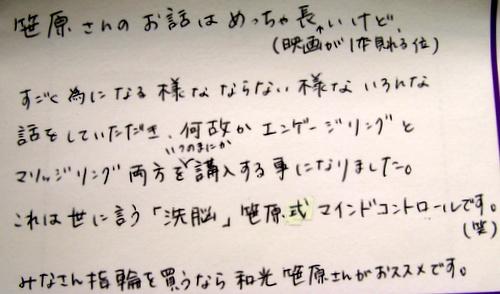 笹原さんのお話はめっちゃ長いけど、
(映画が1本見れる位)
すごく為になる様なならない様ないろんな
話をしていただき、何故かエンゲージリングと
いつのまにか
マリッジリング両方を購入する事になりました。
これは世に言う「洗脳」笹原式マインドコントロールです。
(笑)
みなさん指輪を買うなら和光笹原さんがおススメです。